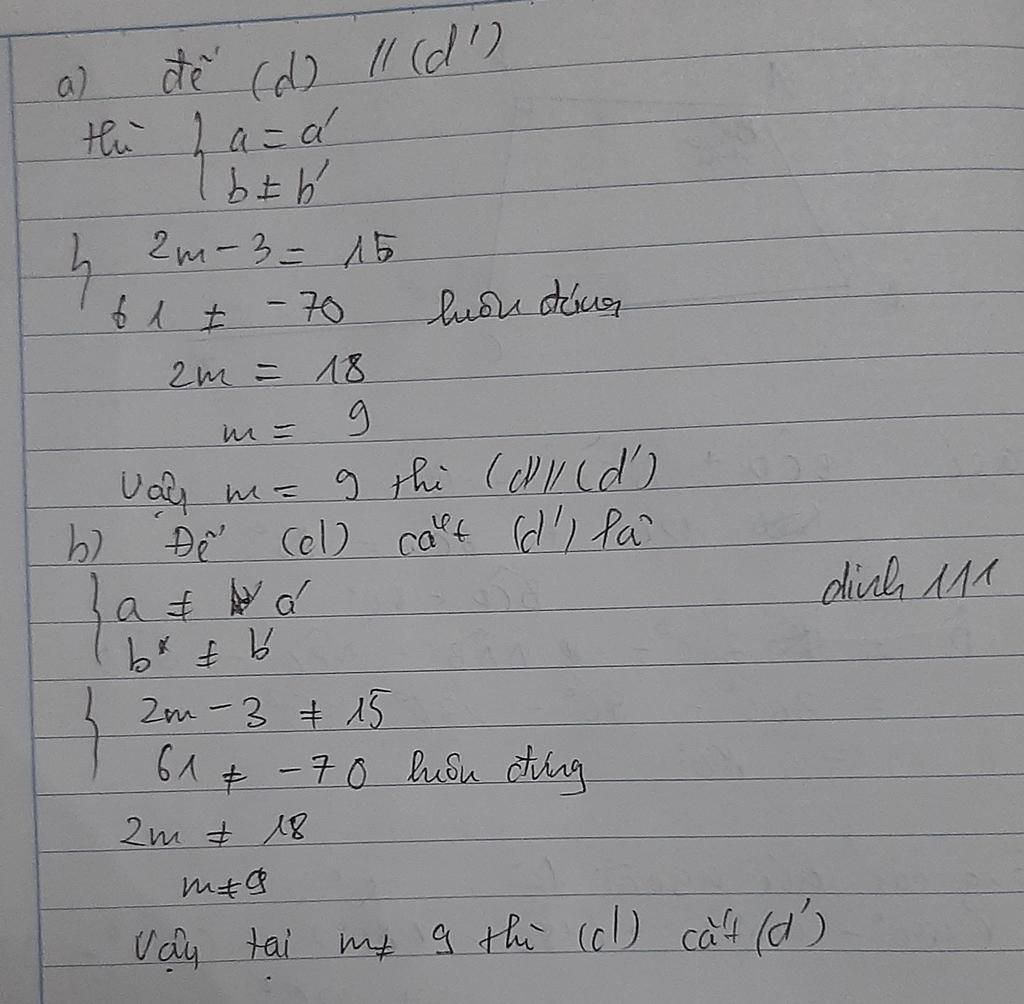 a) để (d) // (d')
thì { a = a'
b ≠ b'
{ 2m - 3 = 15
61 ≠ -70 luôn đúng
2m = 18
m = 9
Vậy m = 9 thì (d) // (d')
b) Để (d) cắt (d')
{ a ≠ a'
b ≠ b'
dinh 111
{ 2m - 3 ≠ 15
61 ≠ -70 luôn đúng
2m ≠ 18
m ≠ 9
Vậy tại m ≠ 9 thì (d) cắt (d')